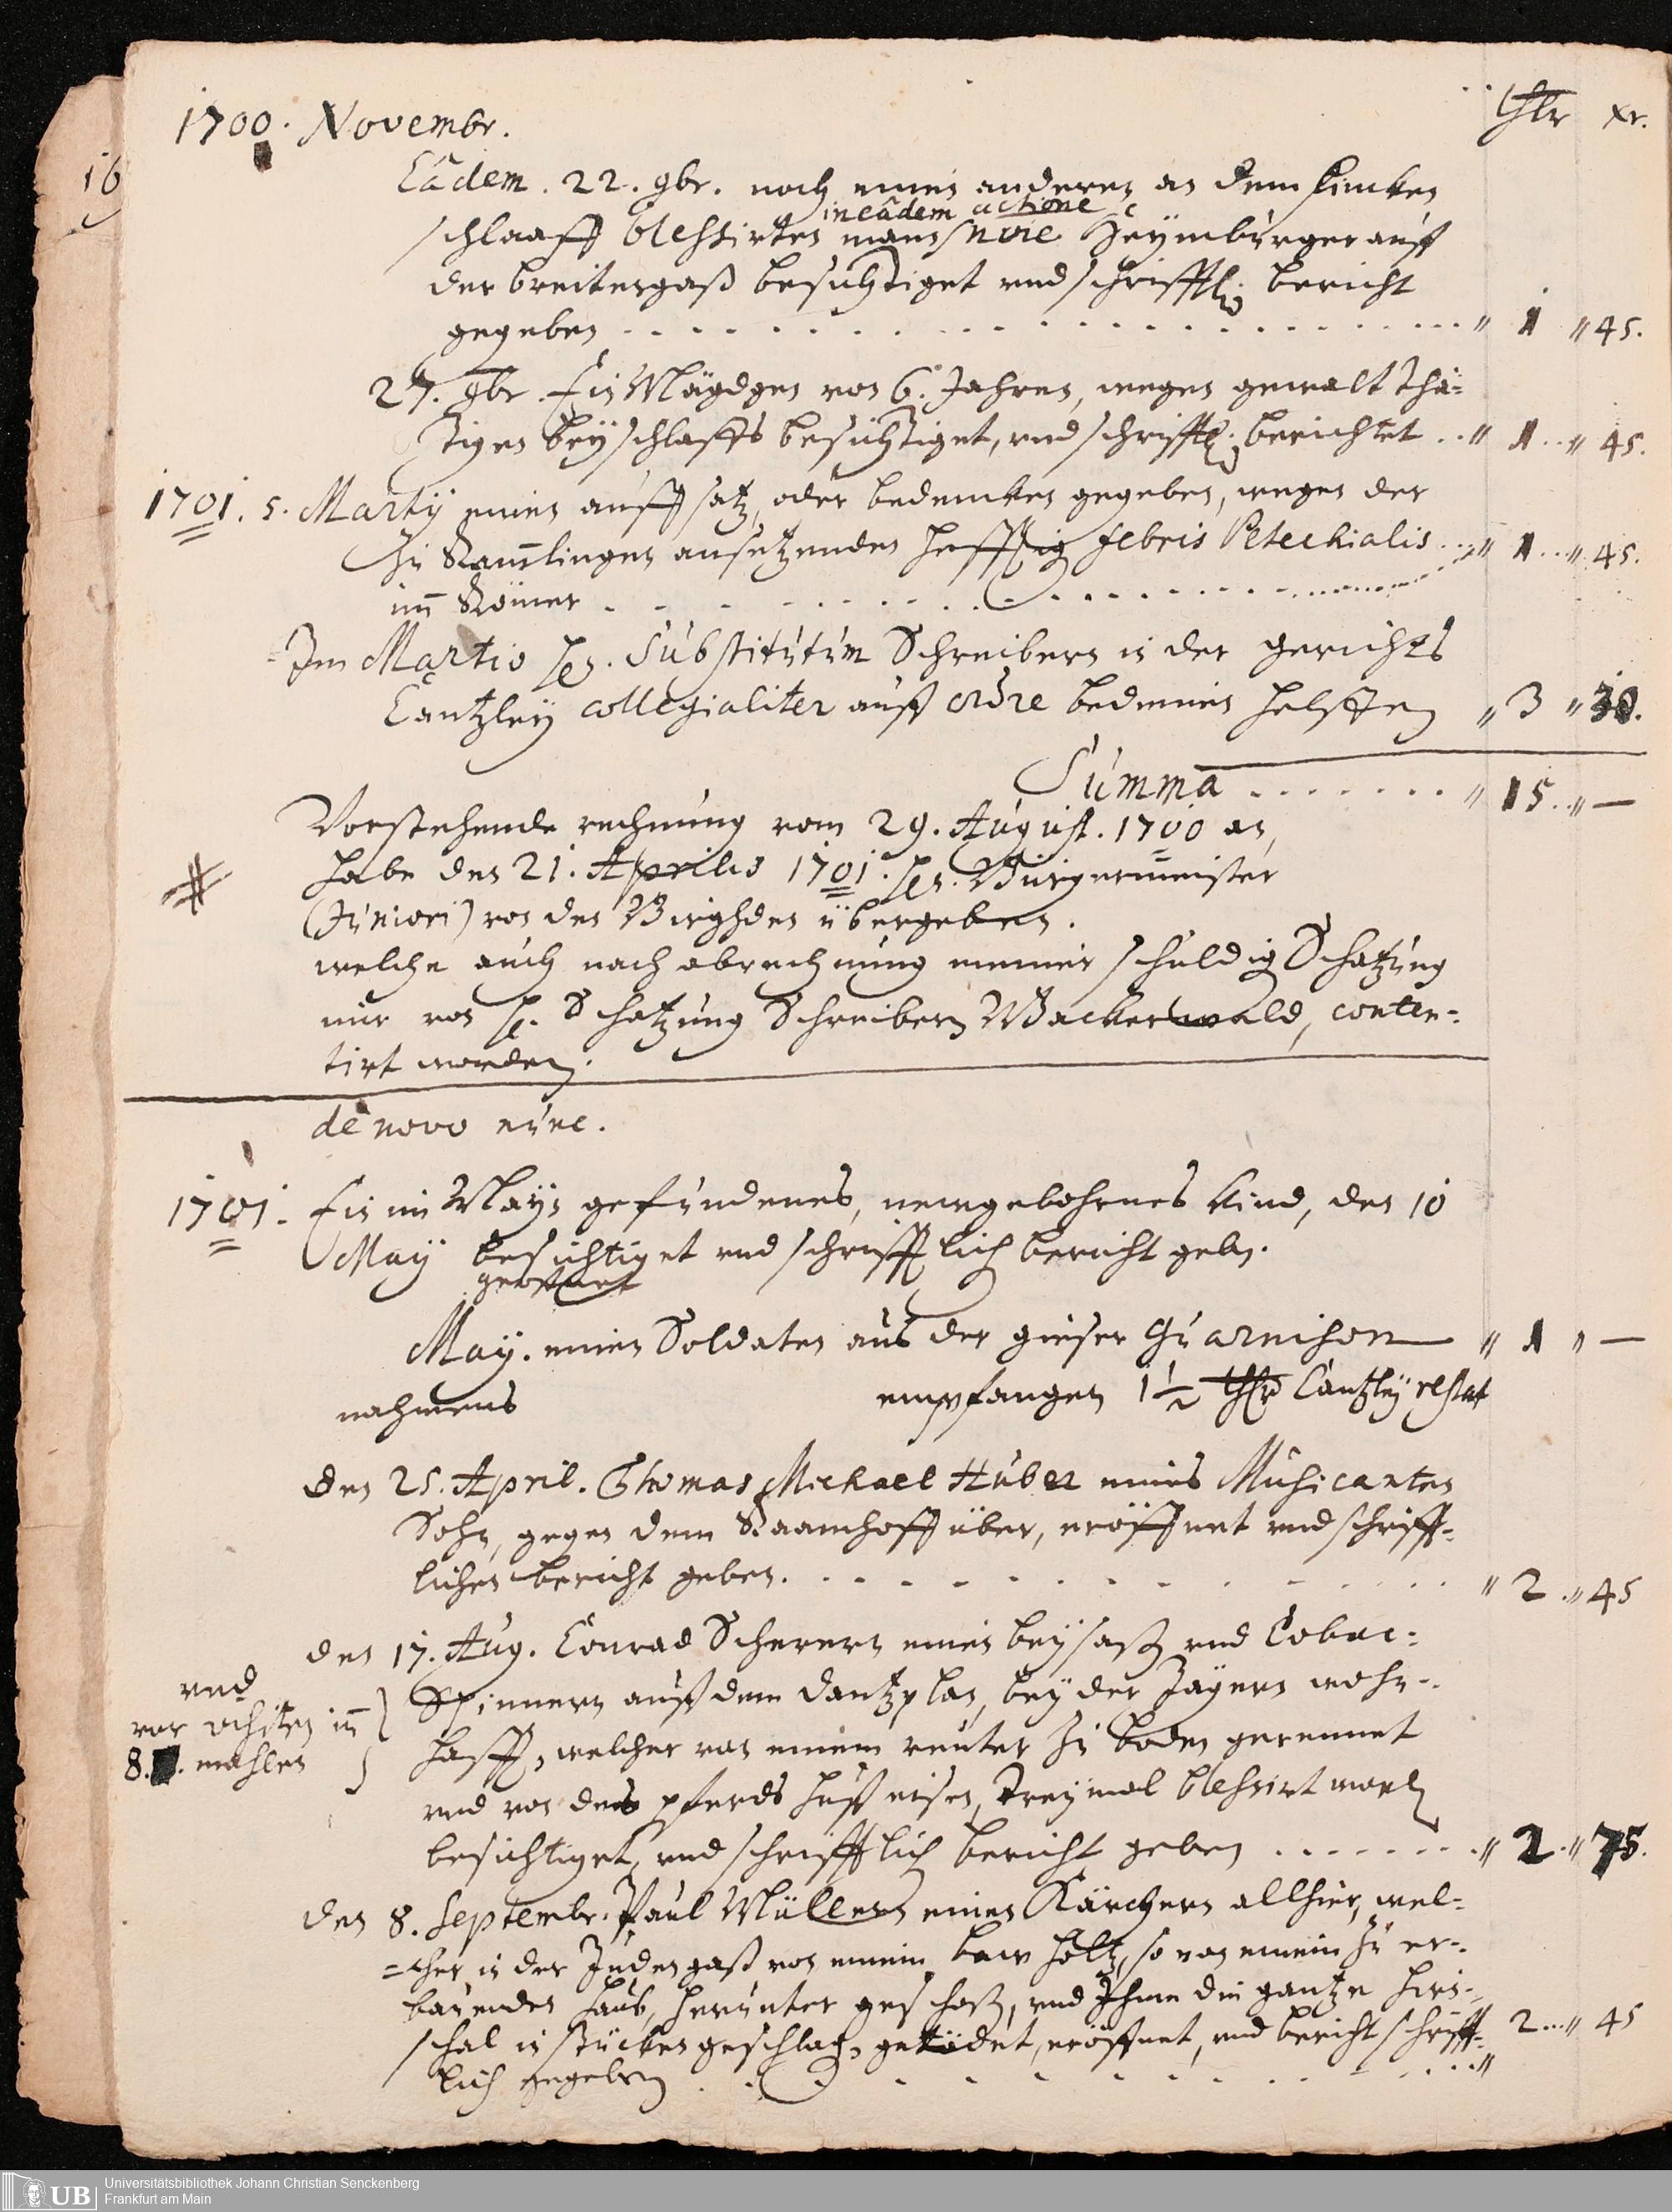 thlr xr.
1700. Novembr.
16
Eâdem. 22. 9br. noch einen anderen an dem lincken
in eâdem actione
schlaaff blessirten mans, Heymbürger auff
der breitengaß besichtiget und schrifftl. bericht
gegeben " 1 " 45.
27. 9br. Ein Mägdgen von 6. Jahren, wegen gewaltthä-
tigen beyschlaffs besichtiget, und schrifftl. berichtet .. " 1 .. " 45.
1701. 5. Martij einen auffsatz, oder bedencken gegeben, wegen der
zu ansetzenden febris Petechialis .. " 1 ... " 45.
im Römer
Im Martio Substitutum Schreibern in der gerichts
Cantzley collegialiter auß ordre bedienen helffen " 3 " 30.
Summa ....... " 15 .. " —
Vorstehende rechnung vom 29. August. 1700 an,
habe den 21. Aprilis 1701. Hrn. Bürgermeister
(Juniori) von den Birghden übergeben.
welche auch nach abrechnung meiner schuldig Schatzung
mir von H. Schatzung Schreibern Wackerwald, conten-
tirt worden.
de novo nunc.
1701. Ein im Mayn gefundenes, newgebohrnes kind, den 10
May besichtiget und schrifftlich bericht geben.
geöffnet
May. einen Soldaten aus der guarnison " 1 " —
nahmens empfangen 1½ thlr Cantzley restat
den 25. April. Thomas Michael Huber eines Musicanten
Sohn, gegen dem Raamhoff über, eröffnet und schrifft-
lichen bericht geben. " 2 " 45
den 17. Aug. Conrad Scherern einen beysaß und Tobac-
und
Spinnern auß dem dantzplan, bey der Jägern wohn-
vor im
8. mahlen
hafft, welcher von einem reuter zu boden gerennet
und von des pferds huffeisen, dreymal blessirt word
besichtiget, und schrifftlich bericht geben ....... " 2 " 75.
den 8. Septembr. Paul Müllern einen Kärchern allhier, wel-
=cher in der Judengaß von einem baw holtz, so von einem zu er-
bauenden hauß, herunter geschoß, und Ihme die gantze hirn-
schal in stücken geschlagen, getödet, eröffnet, und bericht schrifft- 2 ... " 45
lich gegeben
UB Universitätsbibliothek Johann Christian Senckenberg
Frankfurt am Main